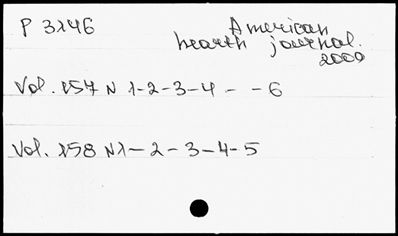 P 3146
American
hearth journal.
2000
Vol. 157 N 1-2-3-4 - - 6
Vol. 158 N1-2-3-4-5